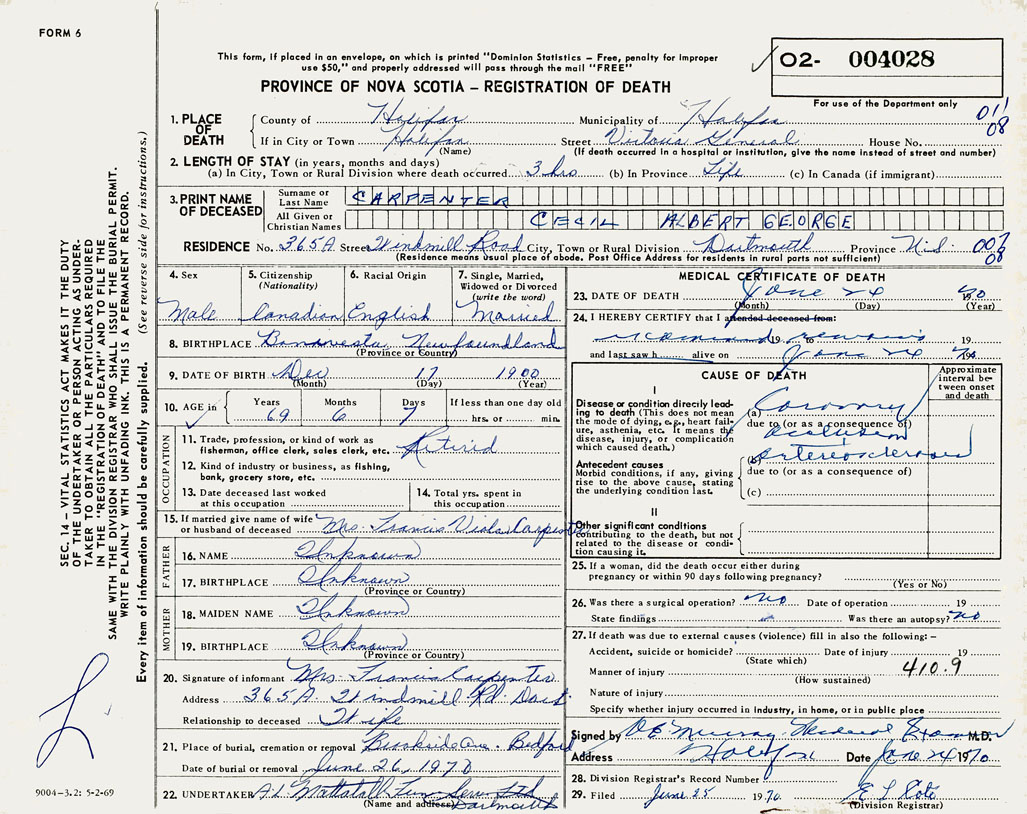 FORM 6
This form, if placed in an envelope, on which is printed "Dominion Statistics – Free, penalty for improper
use $50," and properly addressed will pass through the mail "FREE"
O2- 004028
For use of the Department only
PROVINCE OF NOVA SCOTIA – REGISTRATION OF DEATH
01
08
1. PLACE OF DEATH
County of Halifax Municipality of Halifax
If in City or Town Halifax Street Victoria General House No.
(Name) (If death occurred in a hospital or institution, give the name instead of street and number)
2. LENGTH OF STAY (in years, months and days)
(a) In City, Town or Rural Division where death occurred 3 hrs (b) In Province Life (c) In Canada (if immigrant)
3. PRINT NAME OF DECEASED
Surname or Last Name CARPENTER
All Given or Christian Names CECIL ALBERT GEORGE
RESIDENCE No. 365A Street Windmill Road City, Town or Rural Division Dartmouth Province N.S.
08
(Residence means usual place of abode. Post Office Address for residents in rural parts not sufficient)
4. Sex
Male
5. Citizenship
(Nationality)
Canadian
6. Racial Origin
English
7. Single, Married,
Widowed or Divorced
(write the word)
Married
8. BIRTHPLACE Bonavesta, Newfoundland
(Province or Country)
9. DATE OF BIRTH Dec 17 1900
(Month) (Day) (Year)
10. AGE in
Years Months Days If less than one day old
69 6 7 hrs. or min.
OCCUPATION
11. Trade, profession, or kind of work as
fisherman, office clerk, sales clerk, etc. Retired
12. Kind of industry or business, as fishing,
bank, grocery store, etc.
13. Date deceased last worked
at this occupation
14. Total yrs. spent in
this occupation
15. If married give name of wife
or husband of deceased Mrs. Francis Viola Carpenter
FATHER
16. NAME Unknown
17. BIRTHPLACE Unknown
(Province or Country)
MOTHER
18. MAIDEN NAME Unknown
19. BIRTHPLACE Unknown
(Province or Country)
20. Signature of informant Mrs. Francis Carpenter
Address 365A Windmill Rd. Dart
Relationship to deceased Wife
21. Place of burial, cremation or removal Brookside Cem. Bedford
Date of burial or removal June 26, 1970
22. UNDERTAKER A.L. Mattatall Fun. Serv. Ltd
(Name and address) Dartmouth
MEDICAL CERTIFICATE OF DEATH
23. DATE OF DEATH June 24 1970
(Month) (Day) (Year)
24. I HEREBY CERTIFY that I attended deceased from:
examined remains 19 to 19
and last saw h alive on June 24 70
CAUSE OF DEATH
Approximate
interval be-
tween onset
and death
I
Disease or condition directly lead-
ing to death (This does not mean
the mode of dying, e.g., heart fail-
ure, asthenia, etc. It means the
disease, injury, or complication
which caused death.)
(a) Coronary
due to (or as a consequence of)
occlusion
Antecedent causes
Morbid conditions, if any, giving
rise to the above cause, stating
the underlying condition last.
(b) arteriosclerosis
due to (or as a consequence of)
(c)
II
Other significant conditions
contributing to the death, but not
related to the disease or condi-
tion causing it.
25. If a woman, did the death occur either during
pregnancy or within 90 days following pregnancy?
(Yes or No)
26. Was there a surgical operation? No Date of operation 19
State findings Was there an autopsy? No
27. If death was due to external causes (violence) fill in also the following: –
Accident, suicide or homicide? Date of injury 19
(State which)
Manner of injury 410.9
(How sustained)
Nature of injury
Specify whether injury occurred in industry, in home, or in public place
Signed by D.E. Murray Medical Examiner M.D.
Address Halifax Date June 24 1970
28. Division Registrar's Record Number
29. Filed June 25 1970 E L Cote
(Division Registrar)
SEC. 14 – VITAL STATISTICS ACT MAKES IT THE DUTY
OF THE UNDERTAKER OR PERSON ACTING AS UNDER-
TAKER TO OBTAIN ALL THE PARTICULARS REQUIRED
IN THE "REGISTRATION OF DEATH" AND TO FILE THE
SAME WITH THE DIVISION REGISTRAR WHO SHALL ISSUE THE BURIAL PERMIT.
WRITE PLAINLY WITH UNFADING INK. THIS IS A PERMANENT RECORD.
Every item of information should be carefully supplied. (See reverse side for instructions.)
9004-3.2: 5-2-69